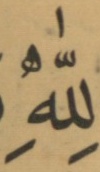 لِلّٰهِ